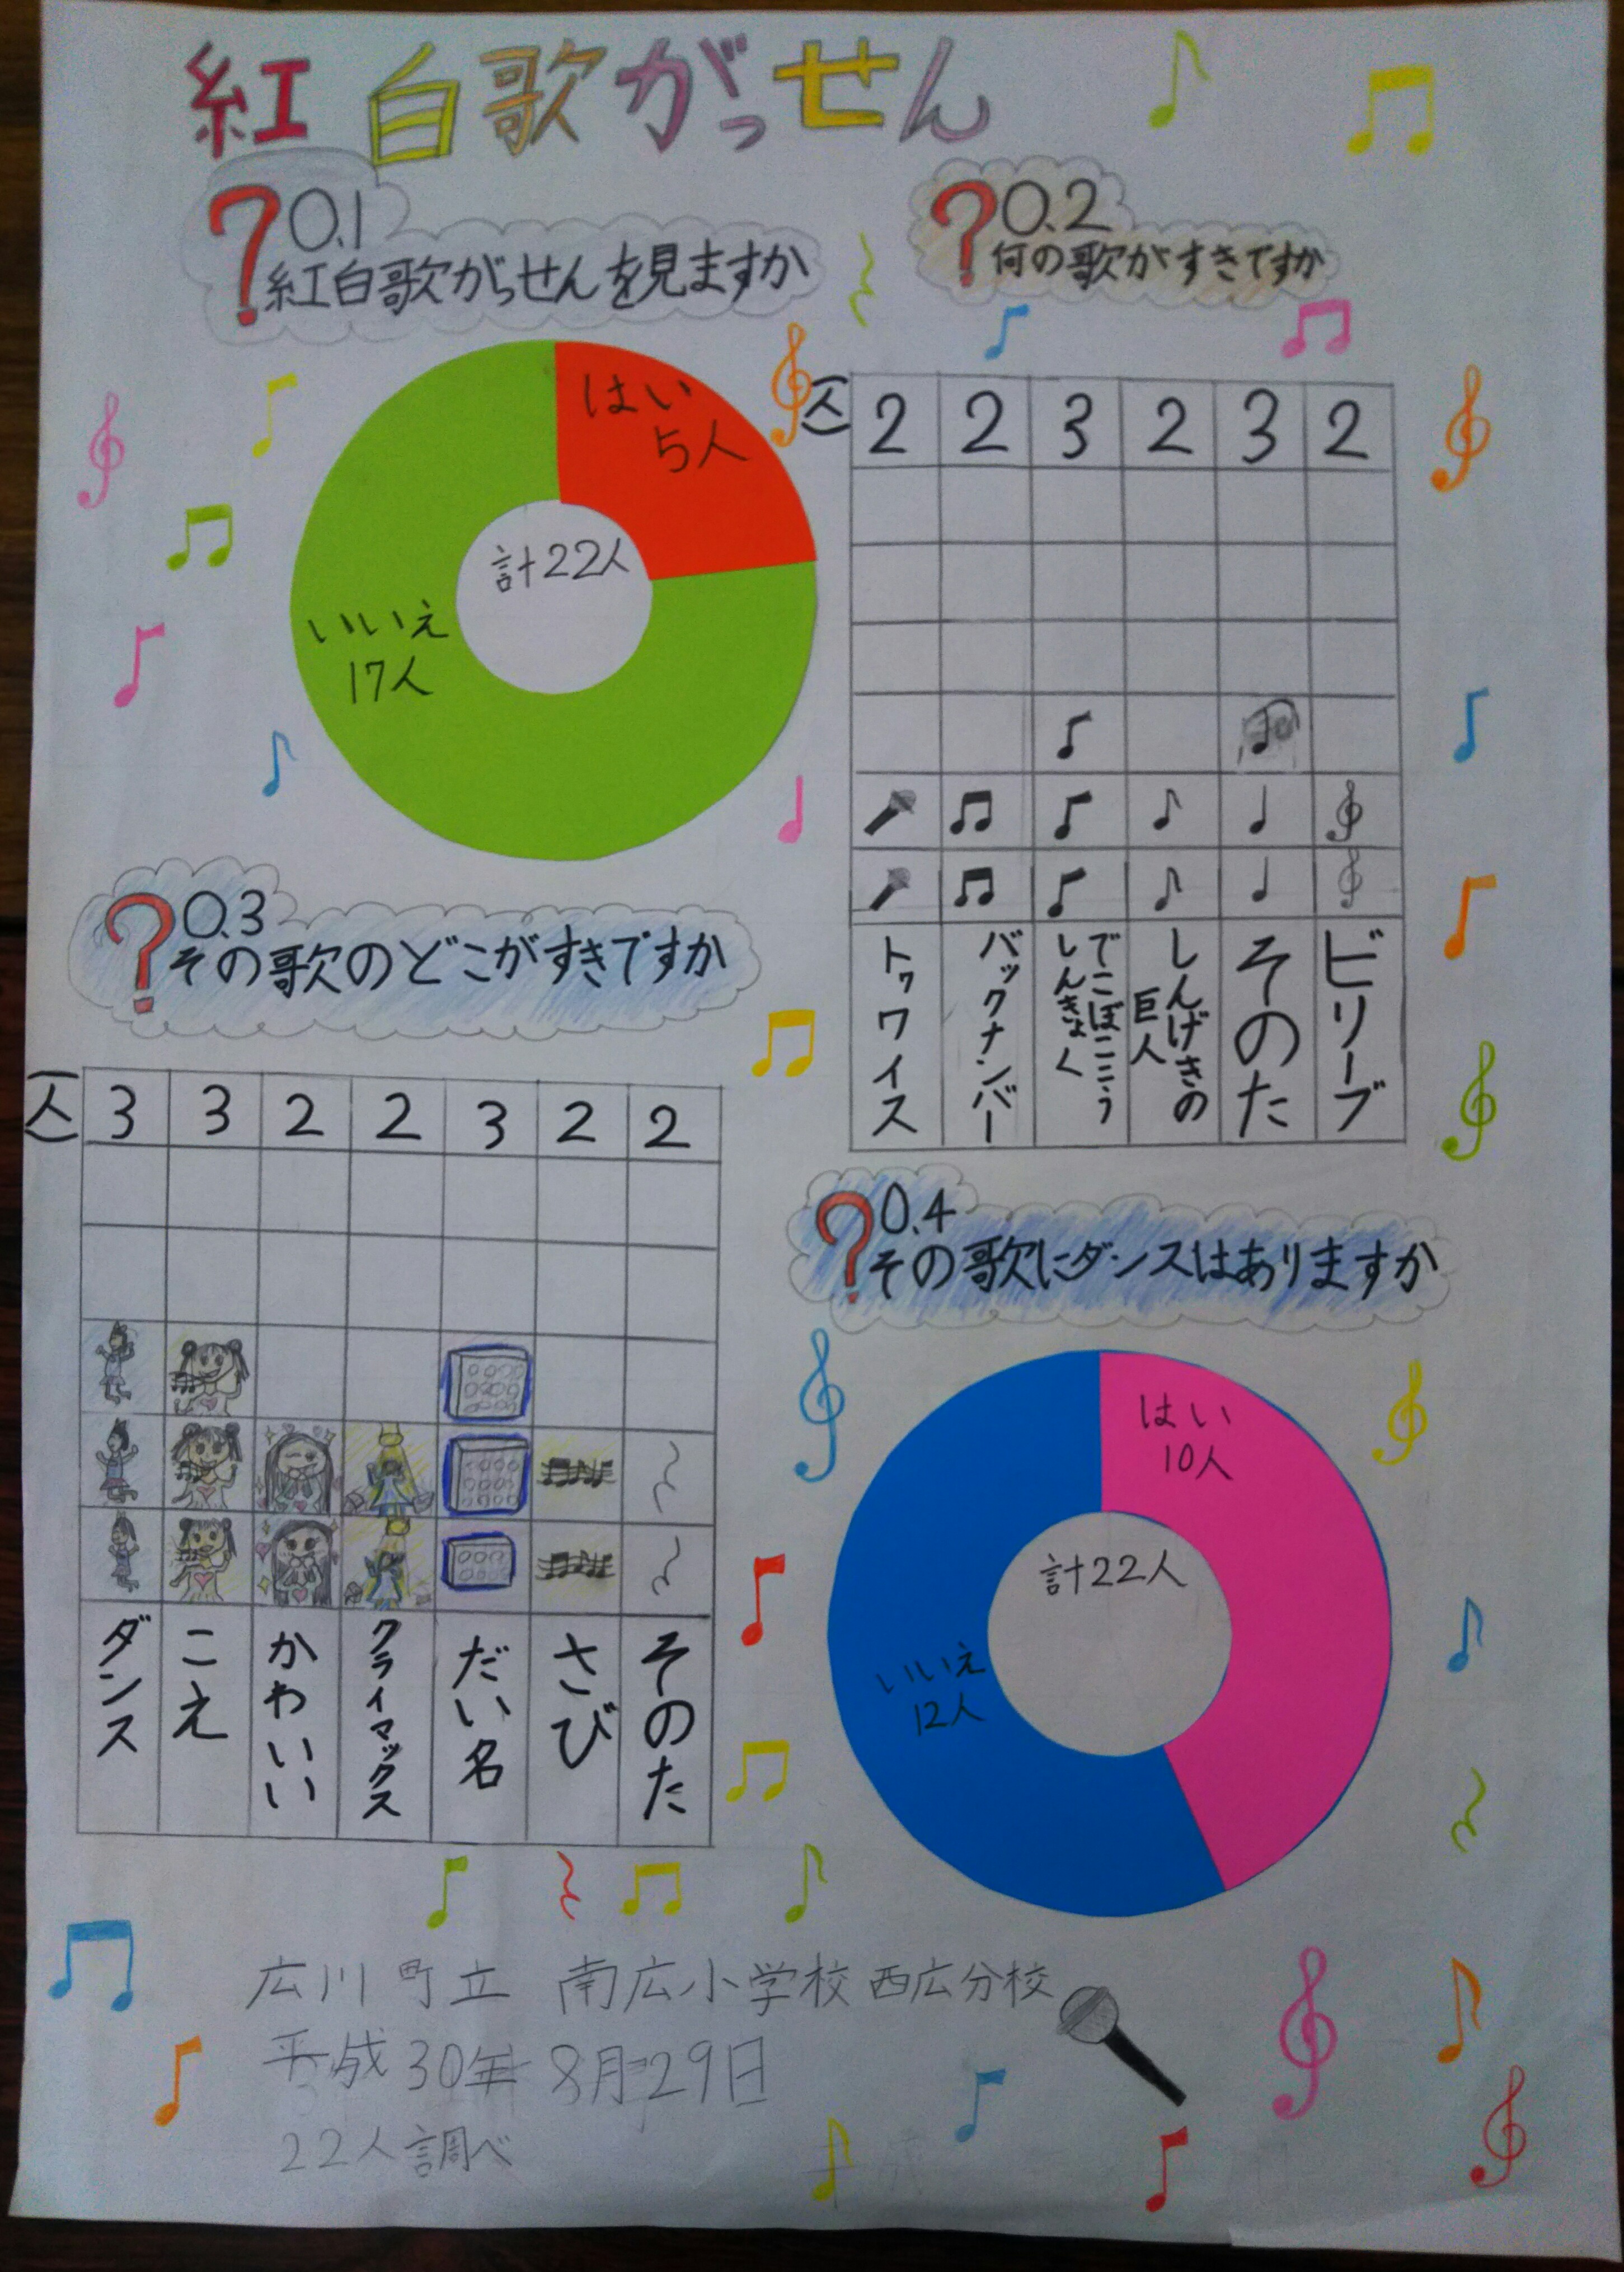 紅白歌がっせん
?Q.1
紅白歌がっせんを見ますか
はい
5人
計22人
いいえ
17人
?Q.2
何の歌がすきですか
(人) 2 2 3 2 3 2
トゥワイス
バックナンバー
でこぼここうしんきょく
しんげきの巨人
そのた
ビリーブ
?Q.3
その歌のどこがすきですか
(人) 3 3 2 2 3 2 2
ダンス
こえ
かわいい
クライマックス
だい名
さび
そのた
?Q.4
その歌にダンスはありますか
はい
10人
計22人
いいえ
12人
広川町立 南広小学校 西広分校
平成30年 8月29日
22人調べ